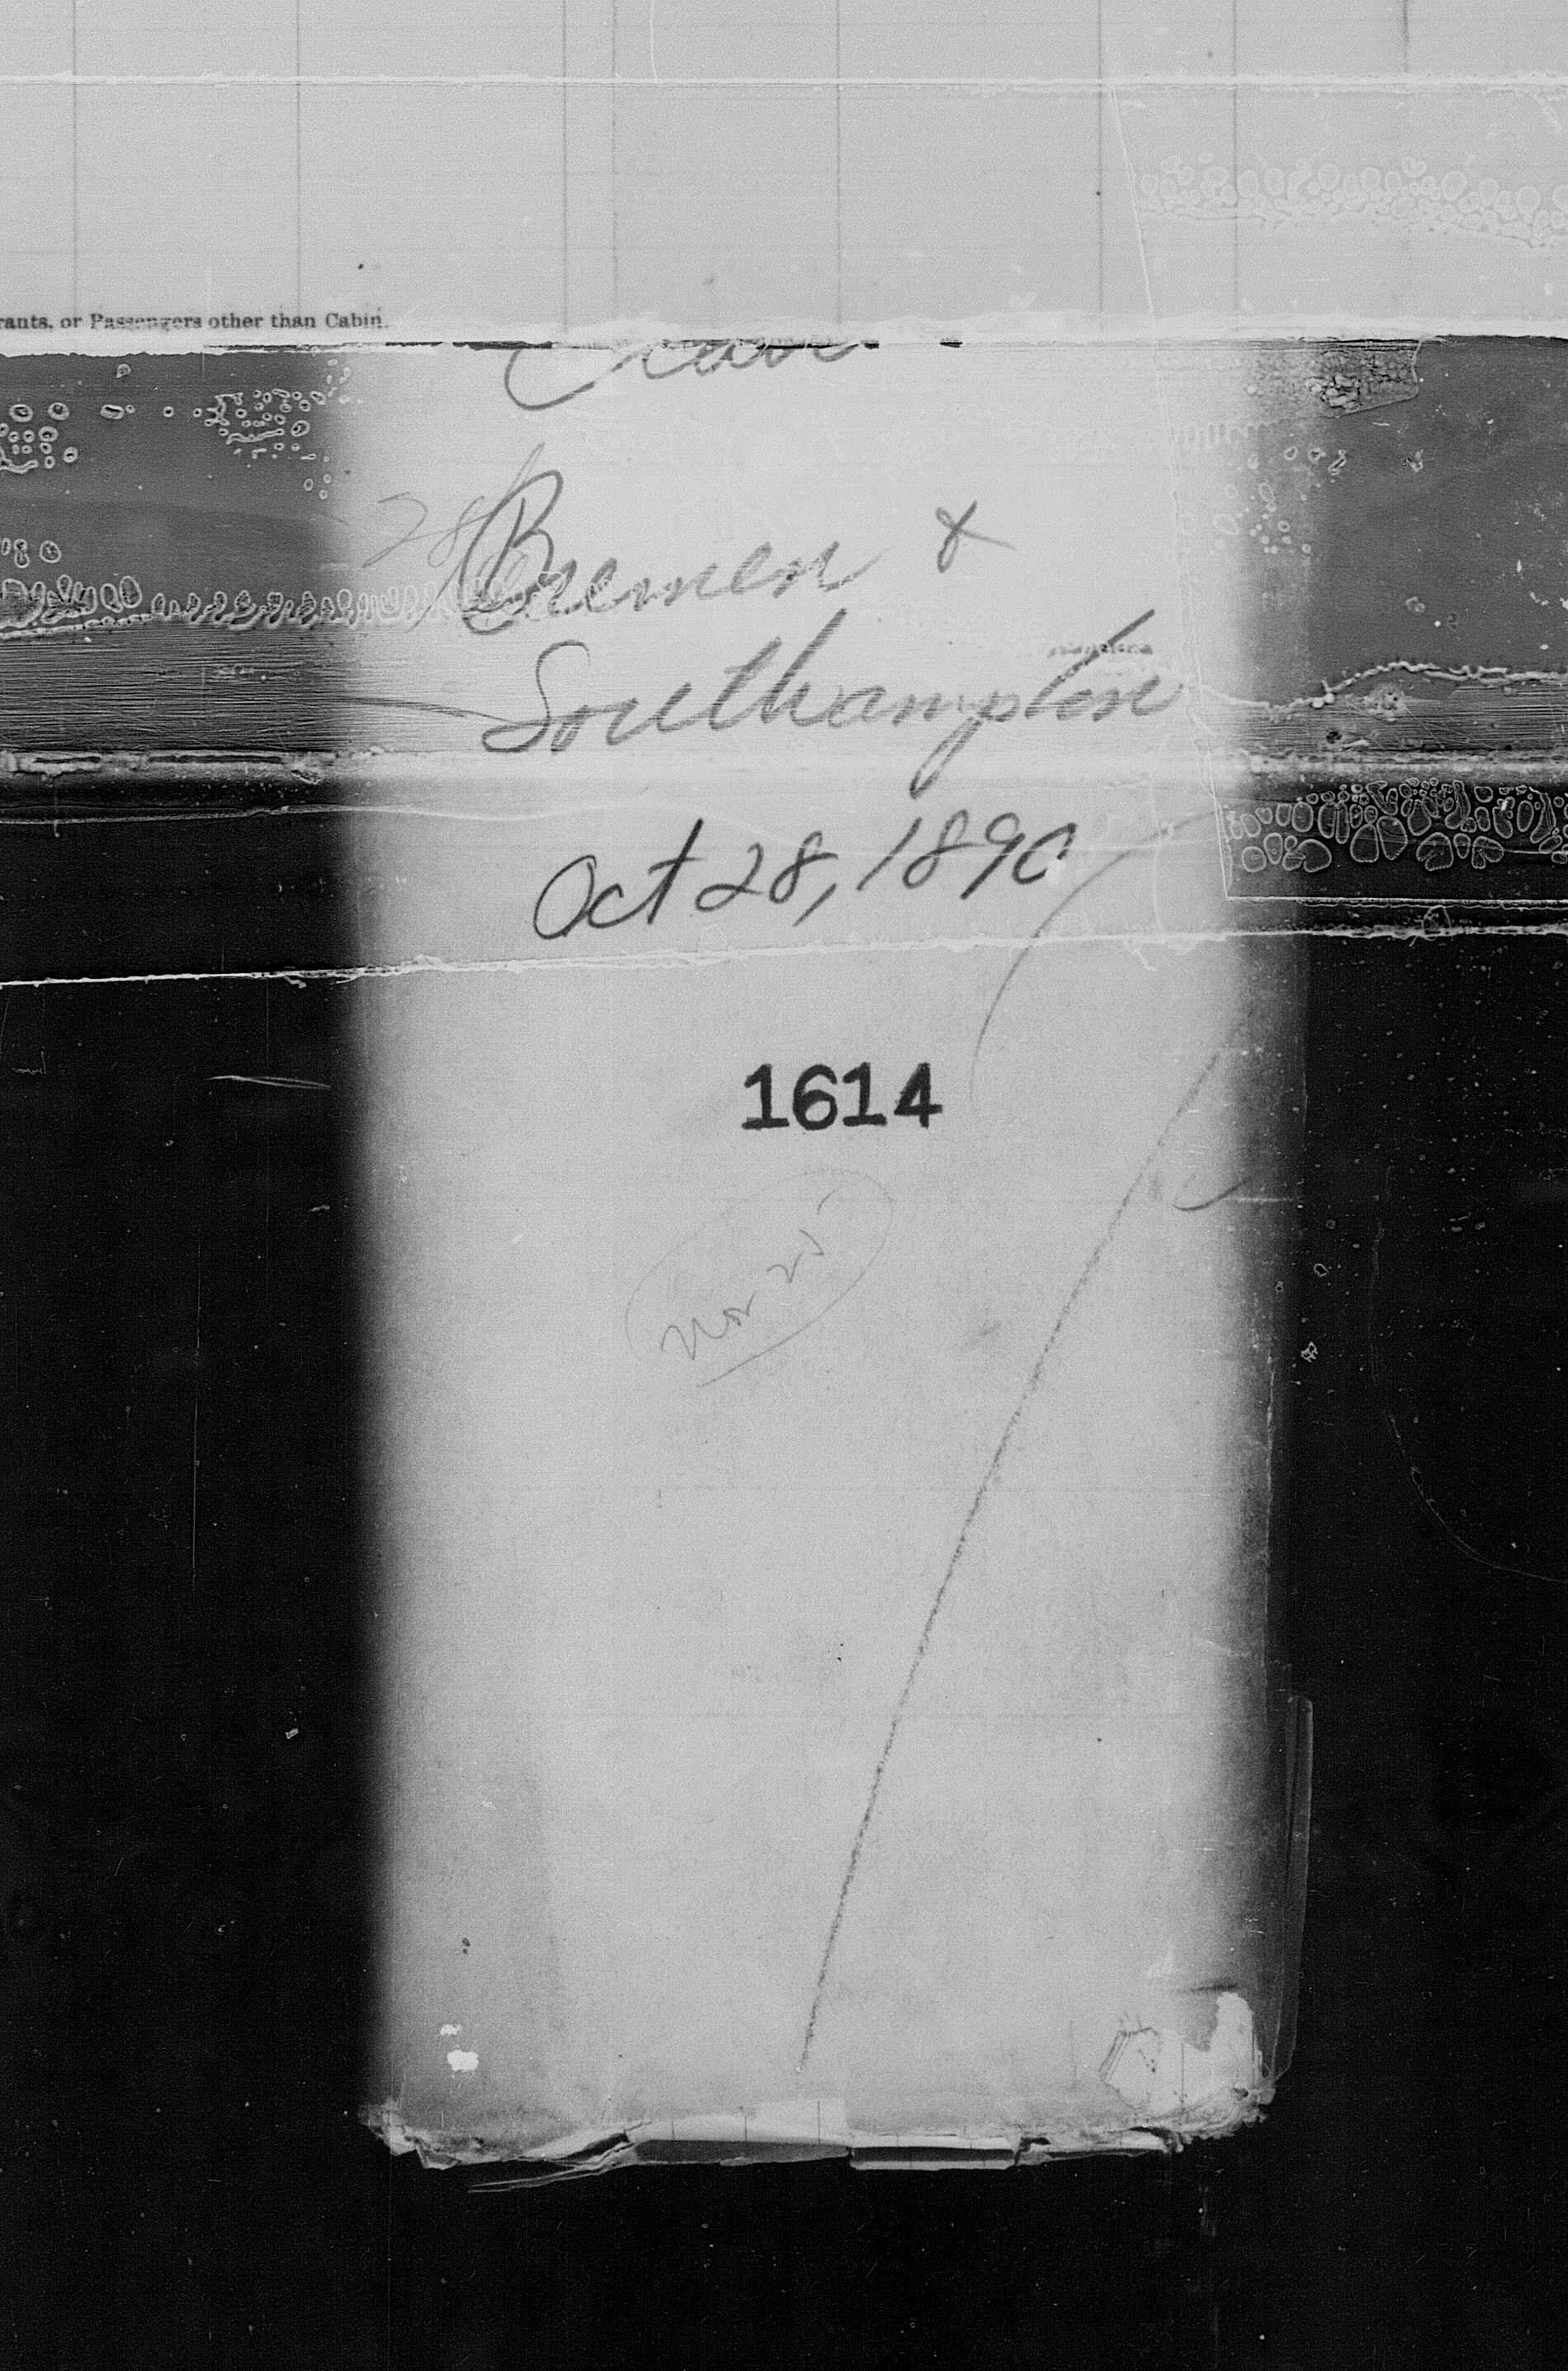 rants, or Passengers other than Cabin.
28
Bremen &
Southampton
Oct 28, 1890
1614
Nov 25